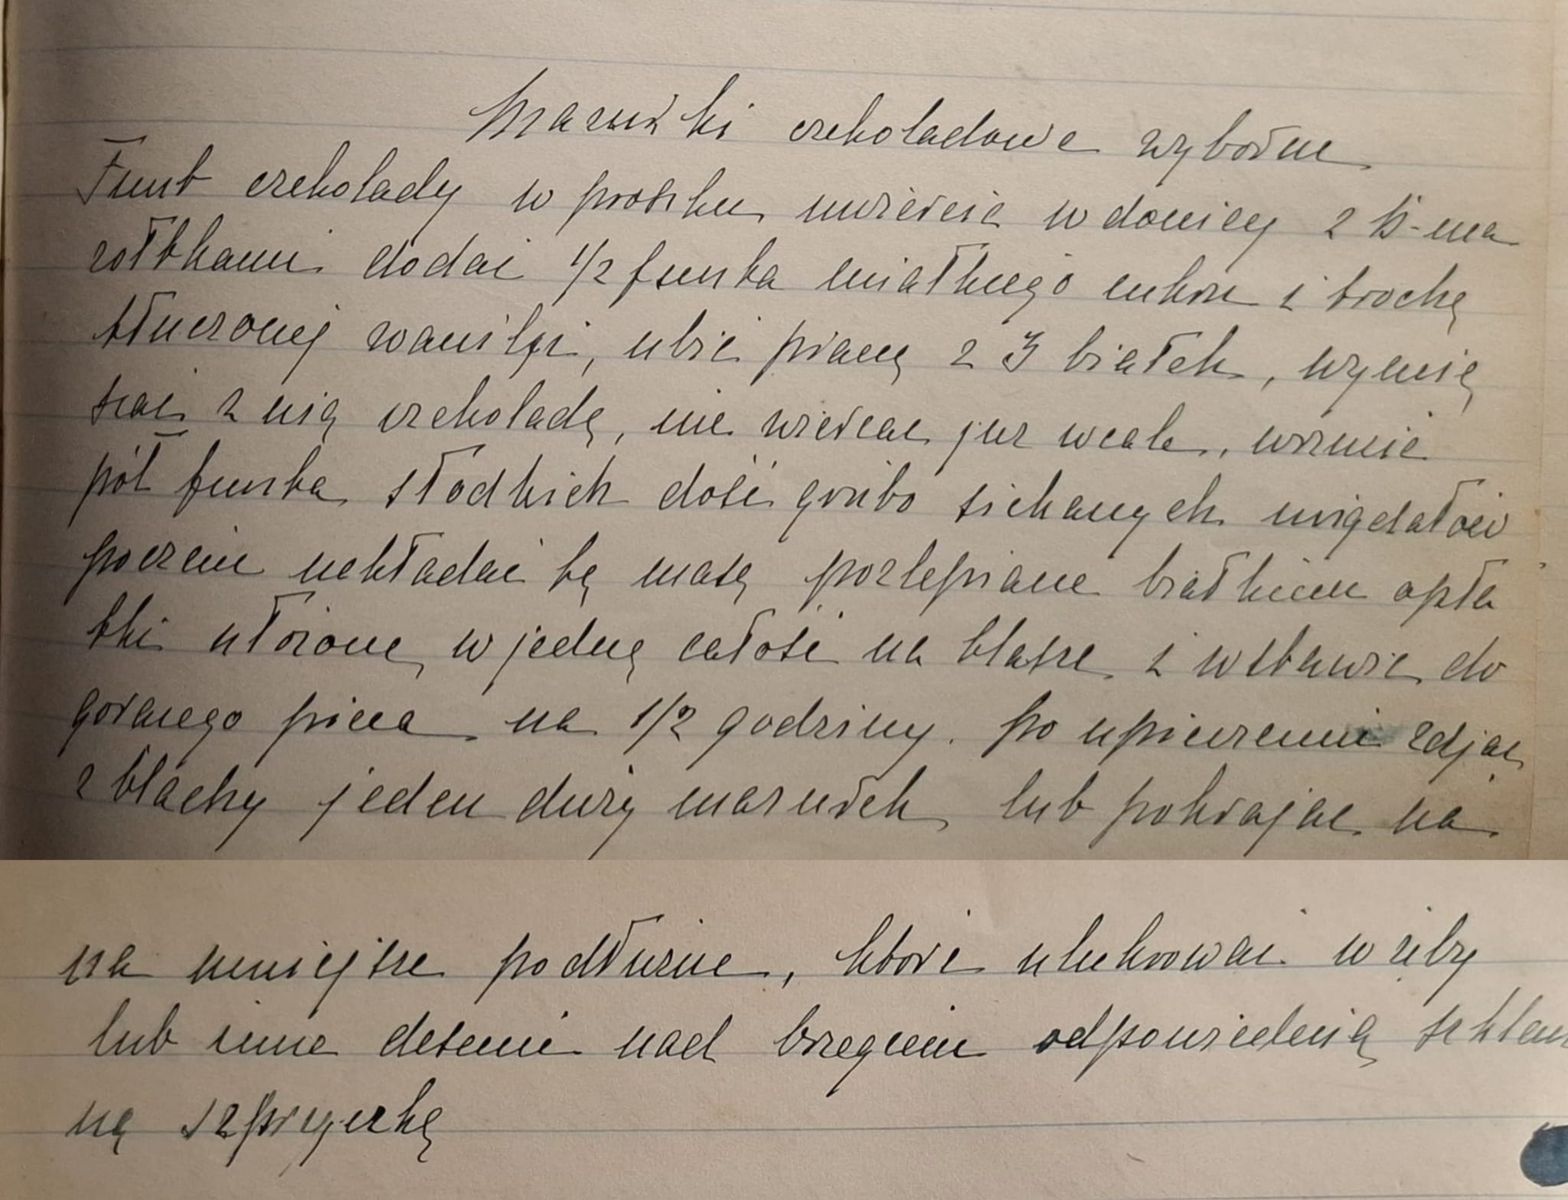 Mazurki czekoladowe wyborne
Funt czekolady w proszku uwiercić w donicy z 15-ma
żółtkami dodać 1/2 funta miałkiego cukru i trochę
tłuczonej wanilji, ubić pianę z 3 białek, wymię
szać z nią czekoladę, nie wiercąc już wcale, wrzucić
pół funta słodkich dość grubo siekanych migdałów
poczem nakładać tę masę pozlepiane białkiem opła
tki ułożone w jedną całość na blasze i wstawić do
gorącego pieca na 1/2 godziny. Po upieczeniu zdjąć
z blachy jeden duży mazurek, lub pokrajać na
na mniejsze podłużne, które ulukrować w zęby
lub inne desenie nad brzegiem odpowiednią szklan
ną szpryczką